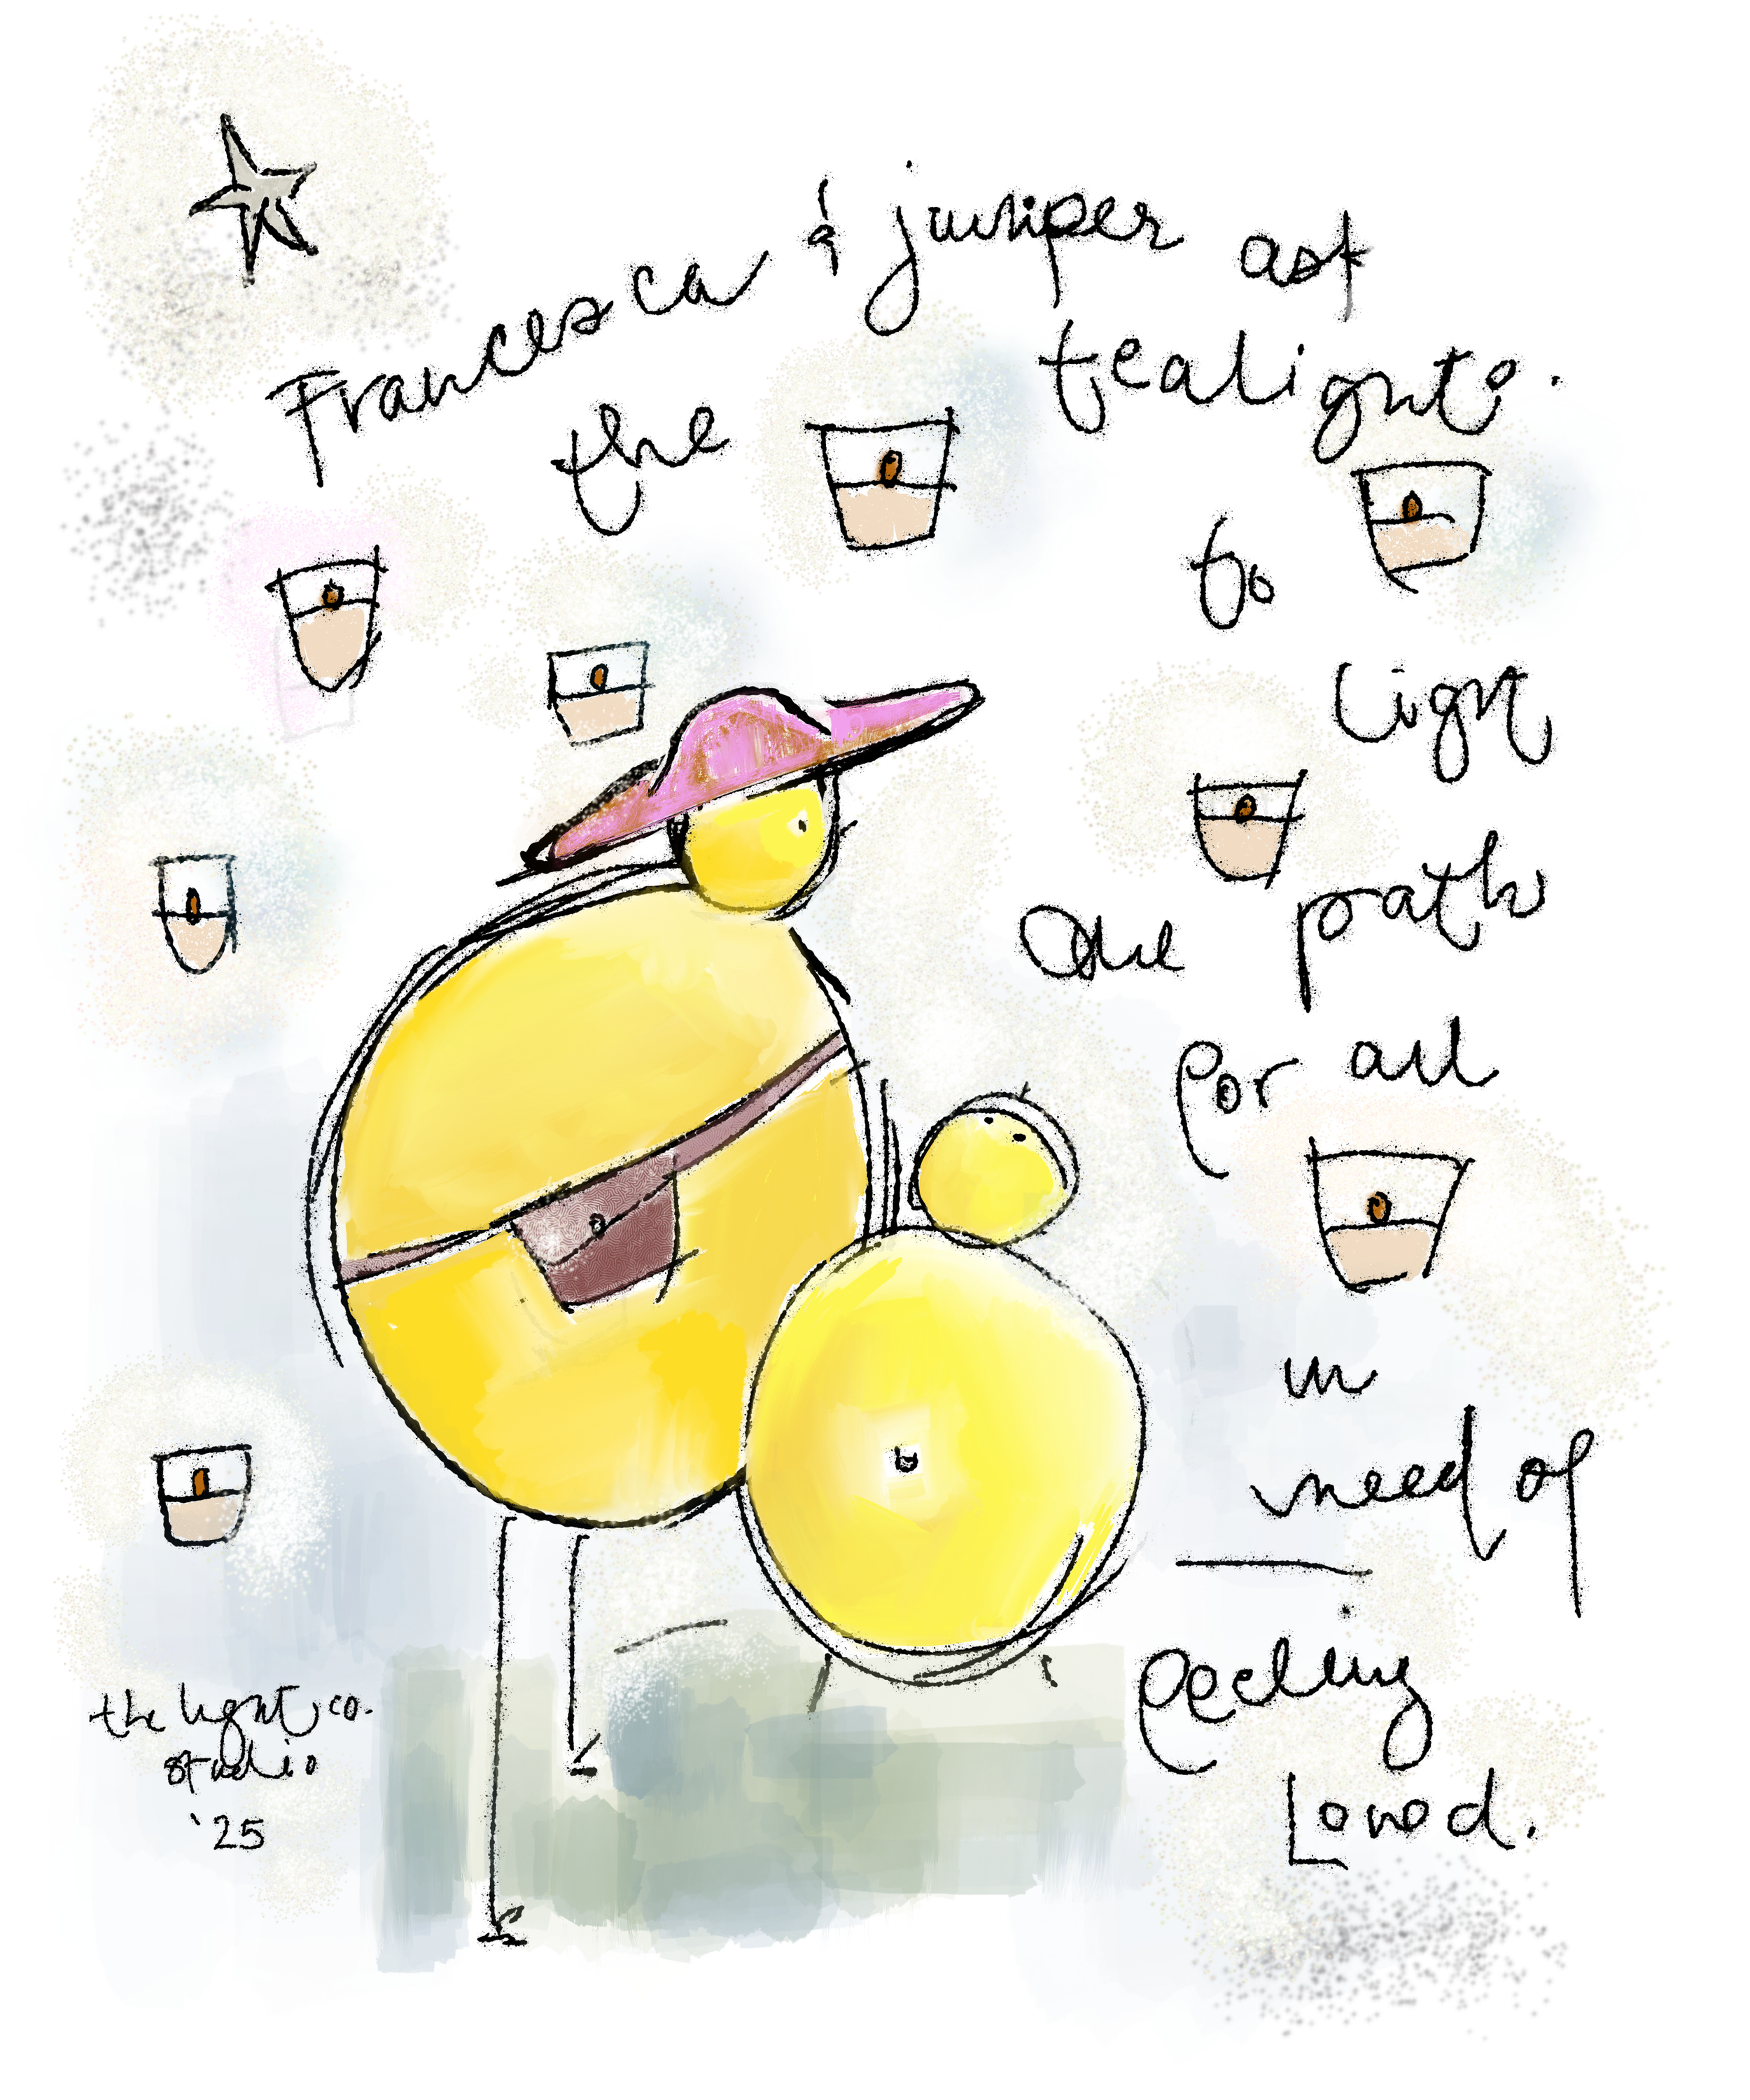 Francesca & juniper ask
the tealights.
to
light
the path
for all
in
need of
feeling
Loved.
the light co.
studio
'25